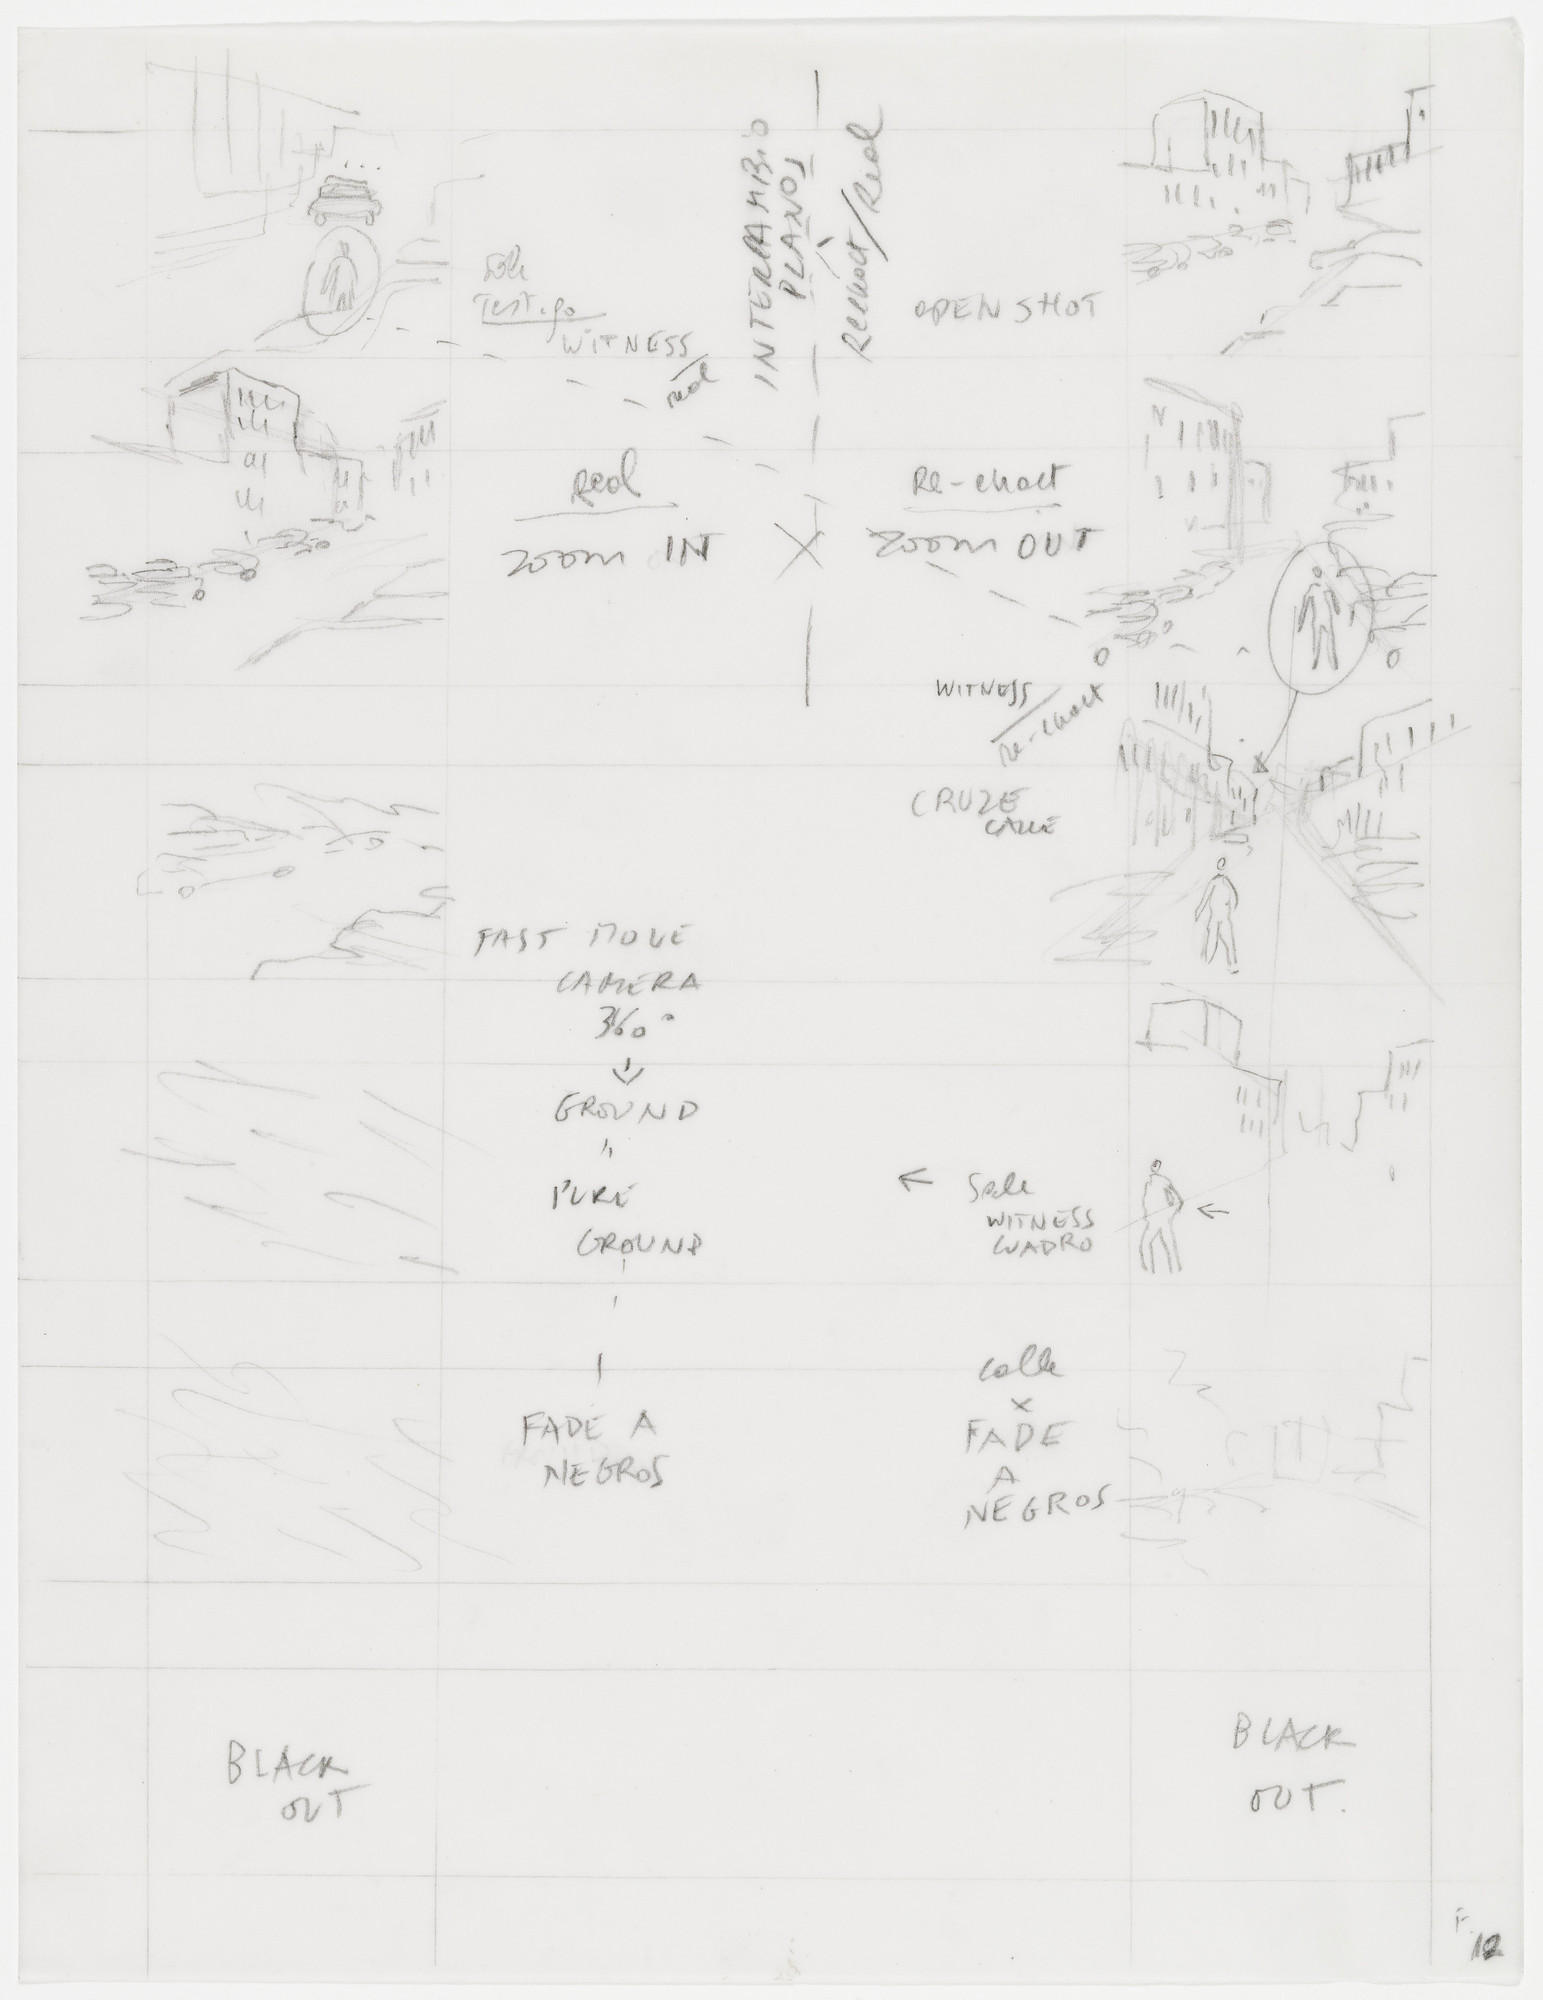 INTERCAMBIO
PLANOS
Reenact/Real
Sale
Testigo
WITNESS
real
OPEN SHOT
Real
ZOOM IN
X
Re-enact
ZOOM OUT
WITNESS
re-enact
CRUZE
CALLE
FAST MOVE
CAMERA
360°
GROUND
"
PURE
GROUND
Sale
WITNESS
CUADRO
FADE A
NEGROS
calle
x
FADE
A
NEGROS
BLACK
OUT
BLACK
OUT.
F.
12